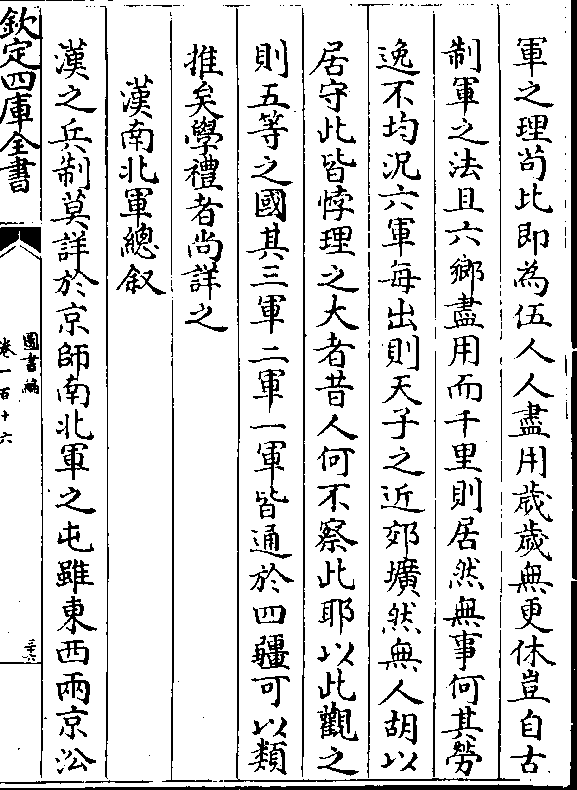 軍之理茍比即為伍人人盡用歳歲無更休豈自古
制軍之法且六鄉盡用而千里則居然無事何其勞
逸不均況六軍每出則天子之近郊壙然無人胡以
居守此皆悖理之大者昔人何不察此耶以此觀之
則五等之國其三軍二軍一軍皆通於四疆可以類
推矣學禮者尚詳之
漢南北軍總叙
漢之兵制莫詳於京師南北軍之屯雖東西兩京㳂
欽定四庫全書
圖書編
卷一百十六
三十六